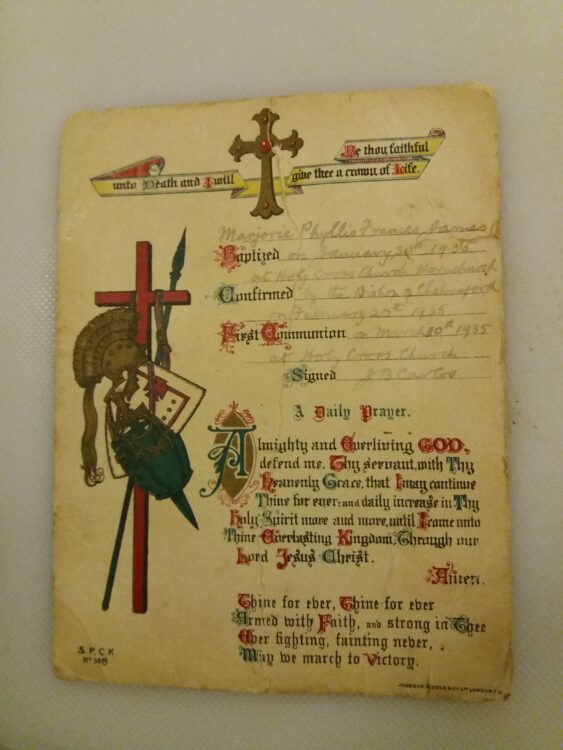 Be thou faithful
unto Death and I will give thee a crown of Life.
Marjorie Phyllis Frances James
Baptized on January 2th 1935
at Holy Cross Church Hornchurch
Confirmed by the Bishop of Chelmsford
on February 20th 1935
First Communion on March 10th 1935
at Holy Cross Church
Signed J B Carlos
A Daily Prayer.
Almighty and Everliving GOD,
defend me, Thy servant, with Thy
Heavenly Grace, that I may continue
Thine for ever: and daily increase in Thy
Holy Spirit more and more, until I come unto
Thine Everlasting Kingdom, Through our
Lord Jesus Christ.
Amen.
Thine for ever, Thine for ever
Armed with Faith, and strong in Thee
Ever fighting, fainting never,
May we march to Victory.
S.P.C.K
No 148
LONDON